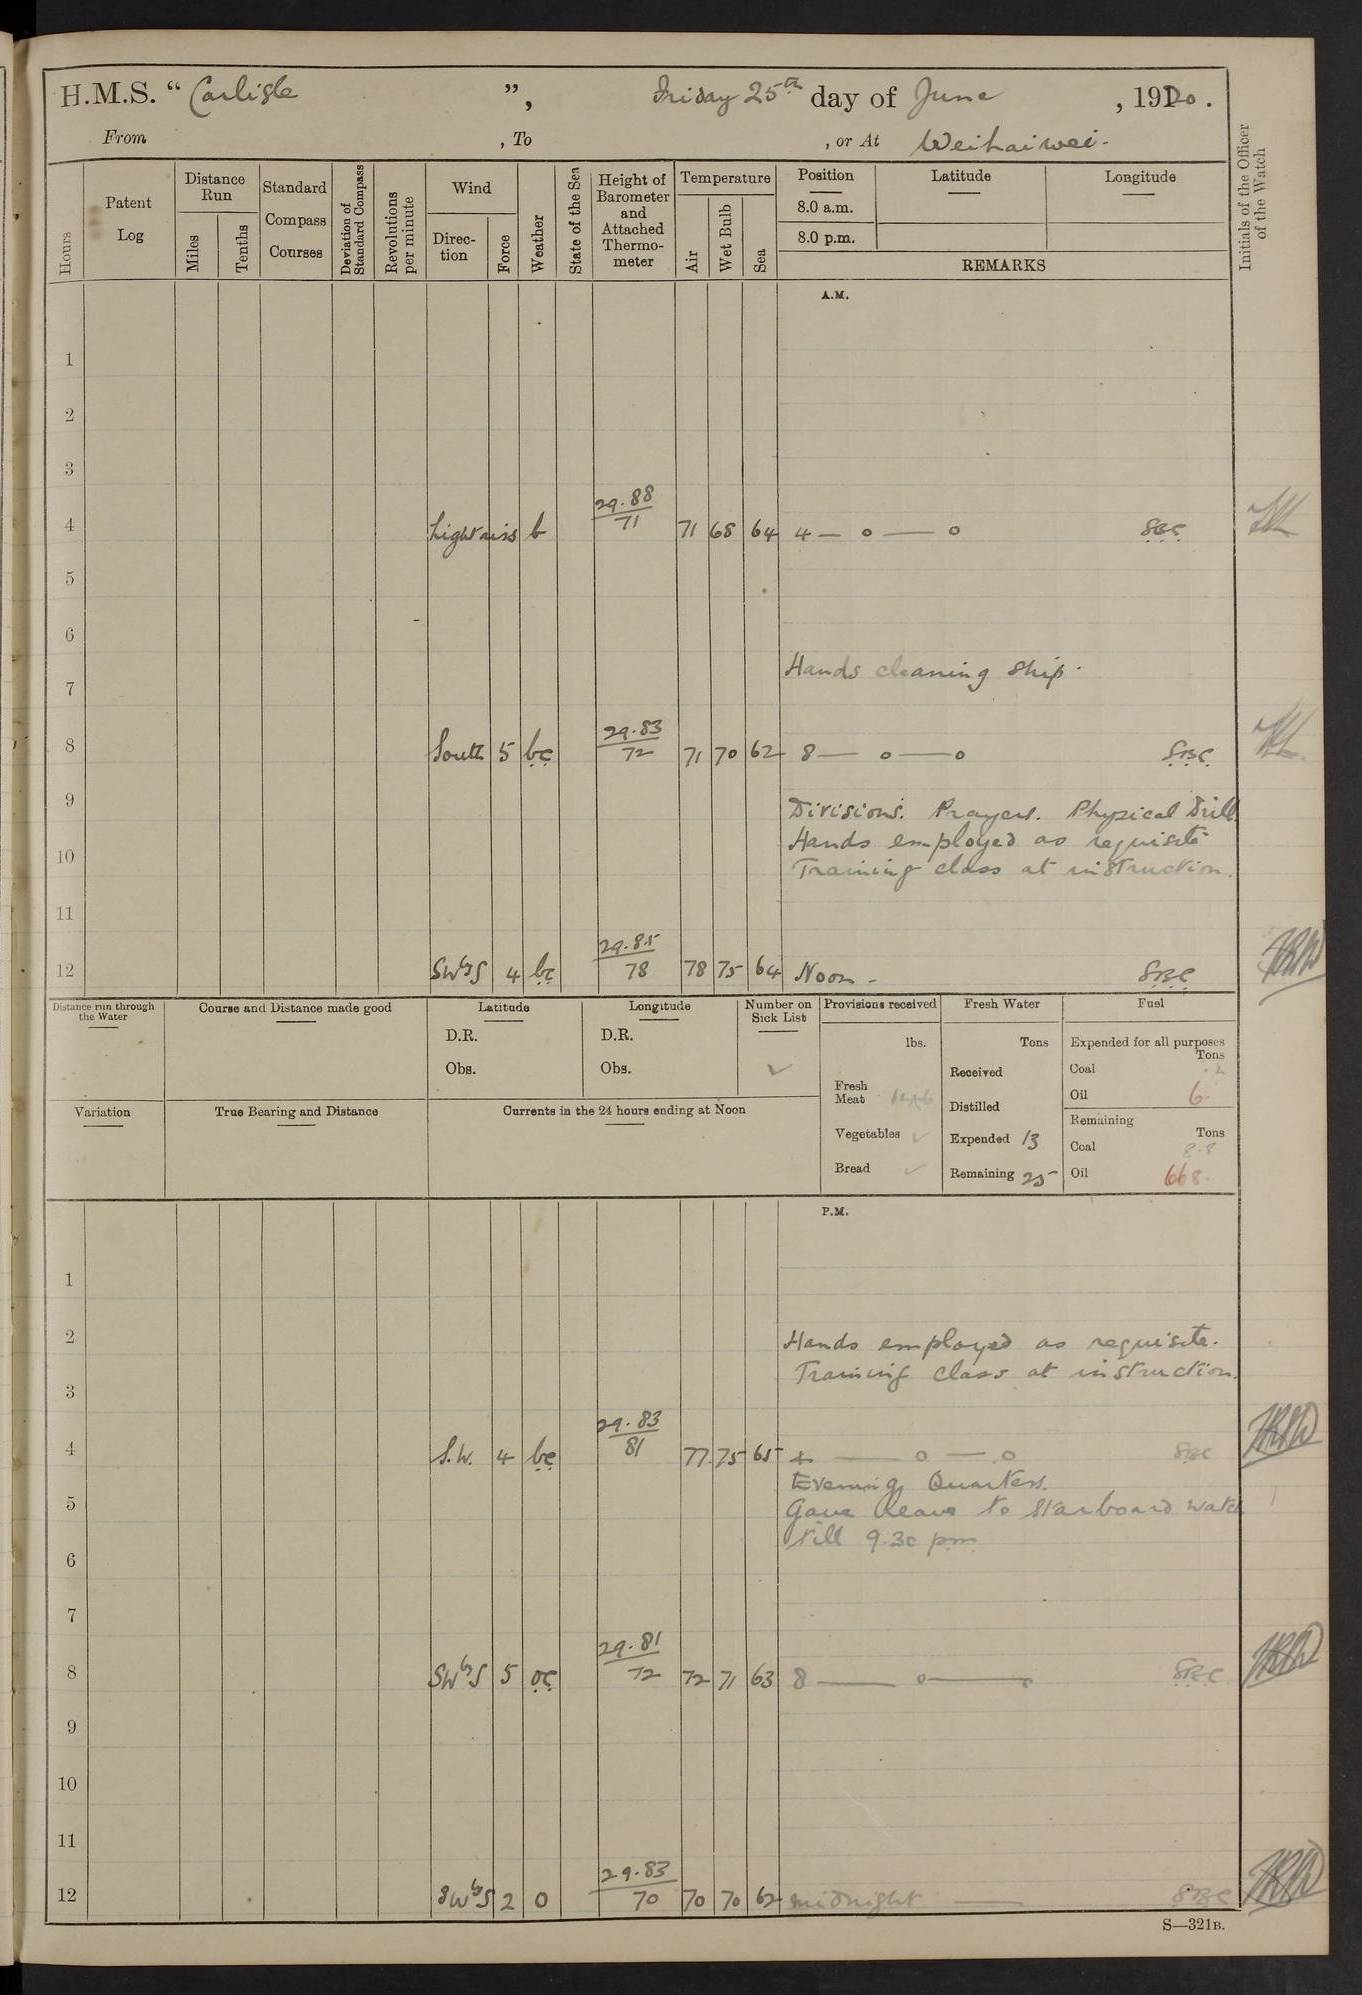 H.M.S. “ Carlisle ”, Friday 25th day of June , 1920.
From , To , or At Weihaiwei.
Hours
Patent Log
Distance Run
Miles
Tenths
Standard Compass Courses
Deviation of Standard Compass
Revolutions per minute
Wind
Direc-tion
Force
Weather
State of the Sea
Height of Barometer and Attached Thermo-meter
Temperature
Air
Wet Bulb
Sea
Position
8.0 a.m.
8.0 p.m.
Latitude
Longitude
REMARKS
Initials of the Officer of the Watch
A.M.
1
2
3
29.88
4 Light airs b 71 71 68 64 4 — o — o SBC
5
6
Hands cleaning ship.
7
29.83
8 South 5 bc 72 71 70 62 8 — o — o SBC
9 Divisions. Prayers. Physical Drill.
Hands employed as requisite
10 Training class at instruction.
11
29.85
12 SWbyS 4 bc 78 78 75 64 Noon - SBC
Distance run through the Water
Course and Distance made good
Latitude
D.R.
Obs.
Longitude
D.R.
Obs.
Number on Sick List
✓
Variation
True Bearing and Distance
Currents in the 24 hours ending at Noon
Provisions received
lbs.
Fresh Meat
Vegetables ✓
Bread ✓
Fresh Water
Tons
Received
Distilled
Expended 13
Remaining 25
Fuel
Expended for all purposes
Tons
Coal .2
Oil 6.
Remaining
Tons
Coal 8.8
Oil 668.
P.M.
1
2 Hands employed as requisite.
Training class at instruction.
3
29.83
4 S.W. 4 bc 81 77 75 65 4 — o — o SBC
Evening Quarters.
5 Gave leave to Starboard watch
till 9.30 pm
6
7
29.81
8 SWbyS 5 oc 72 72 71 63 8 — o — o SBC
9
10
11
29.83
12 SWbyS 2 o 70 70 70 62 midnight — SBC
S—321B.